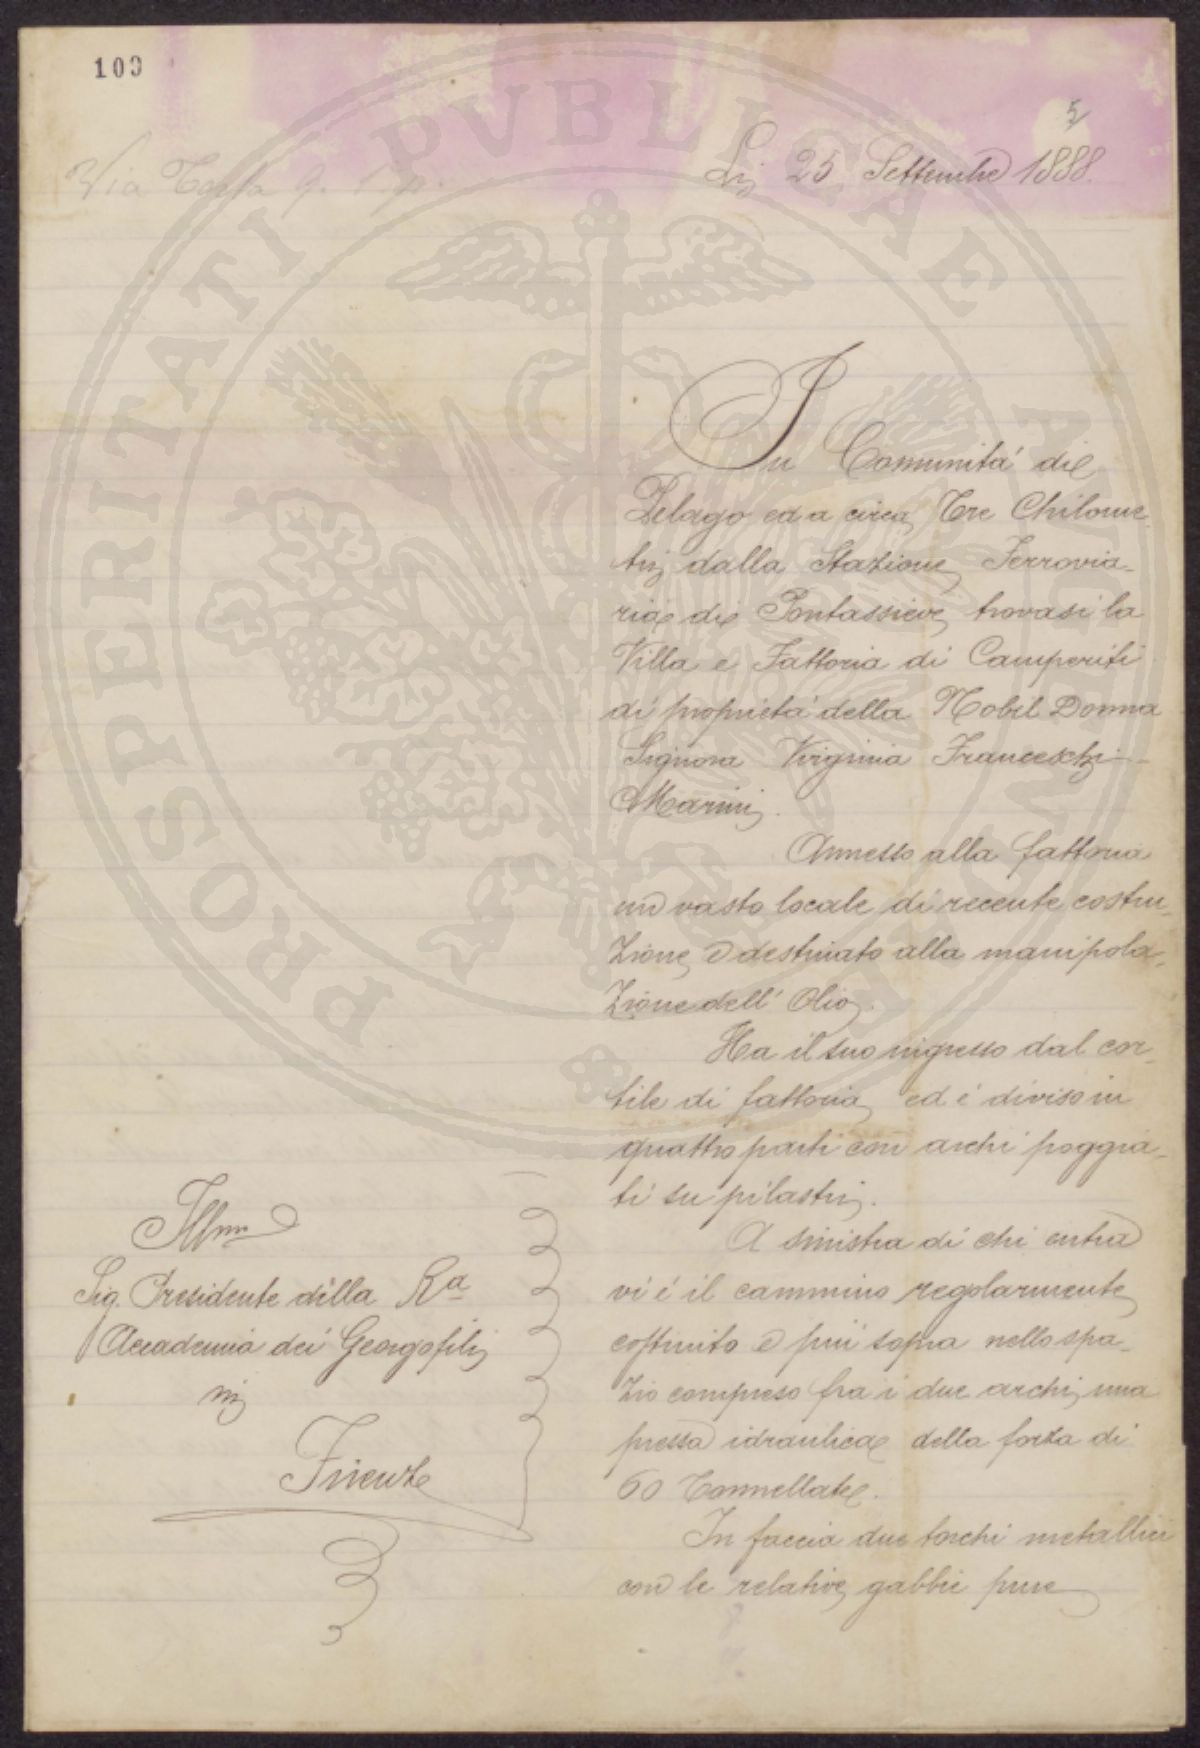 109
5
Via
Li 25 Settembre 1888.
In Comunità di
Pelago ed a circa Tre Chilome-
tri dalla Stazione Ferrovia-
ria di Pontassieve trovasi la
Villa e Fattoria di Camperiti
di proprietà della Nobil Donna
Signora Virginia Franceschi-
Marini.
Annesso alla fattoria
un vasto locale di recente costru-
zione è destinato alla manipola-
zione dell' Olio.
Ha il suo ingresso dal cor-
tile di fattoria ed è diviso in
quattro parti con archi poggia-
ti su pilastri.
A sinistra di chi entra
vi è il cammino regolarmente
costruito e più sopra nello spa-
zio compreso fra i due archi una
pressa idraulica della forza di
60 Tonnellate.
In faccia due torchi metallici
con le relative gabbie pure
Illmo
Sig. Presidente della Ra
Accademia dei Georgofili
in
Firenze
PROSPERITATI PVBLICAE AVGENDAE